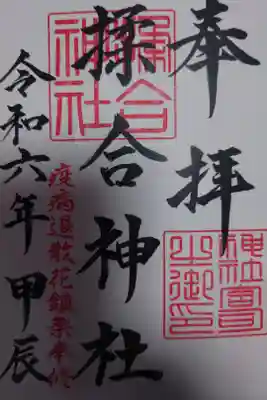 奉拝
揉合神社
疫病退散花鎮祭奉修
令和六年甲辰
揉合神社
神社宮之御印